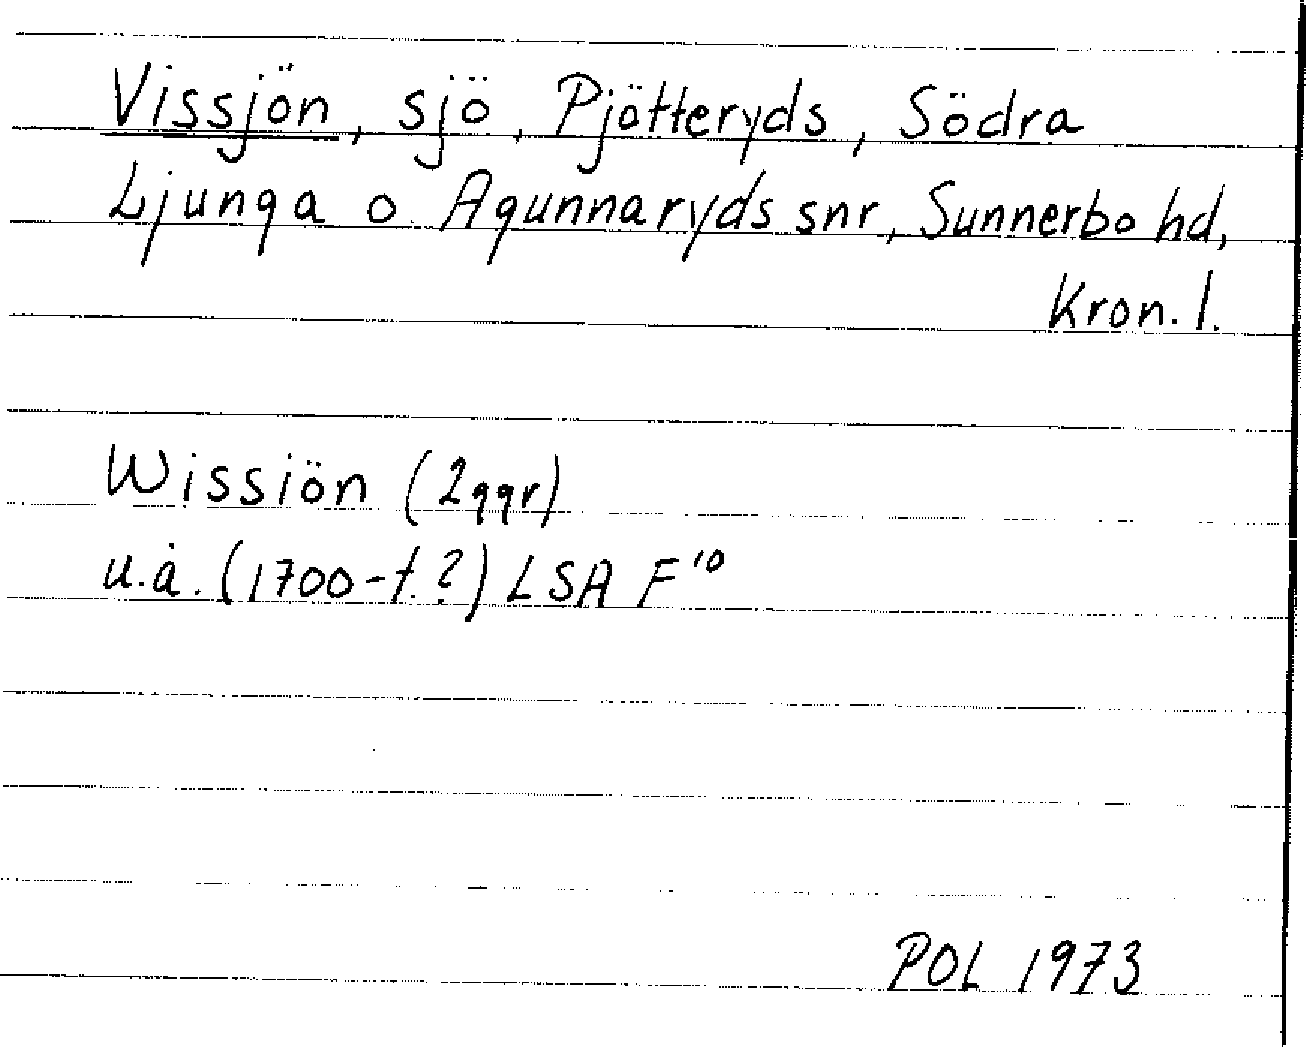 Vissjön, sjö, Pjötteryds, Södra
Ljunga o. Agunnaryds snr, Sunnerbo hd,
Kron. l.
Wissiön (2ggr)
u.å. (1700-t.?) LSA F¹⁰
POL 1973